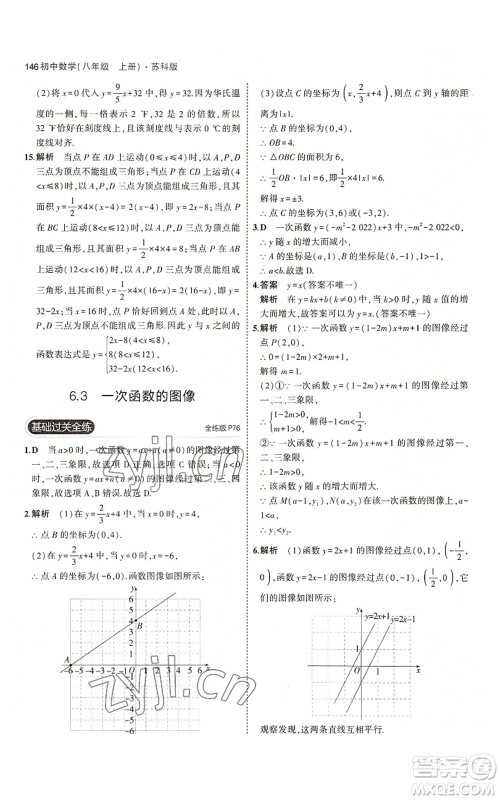 146 初中数学(八年级 上册)·苏科版
(2)将x=0代入y=9/5x+32中,得y=32. 因为华氏温
度的一侧,每一格代表2 ℉,32能被2整除,所以
32 ℉恰好在刻度线上,且该刻度线与表示0 ℃的
刻度线对齐.
15.解析 当点P在AD上运动(0≤x≤4)时,以A,P,D
三点为顶点不能组成三角形;当点P在DC上运动
(4<x≤8)时,以A,P,D三点为顶点能组成三角形,
面积=1/2×4×(x-4)=2x-8;当点P在BC上运动
(8<x≤12)时,以A,P,D三点为顶点能组成三角形,
面积=1/2×4×4=8;当点P在AB上运动
(12<x<16)时,以A,P,D三点为顶点能组成三角
形,面积=1/2×4×[4-(x-12)]=1/2×4×(16-x)=
32-2x;当x=16时,三点不能组成三角形,所以
函数表达式是y={2x-8(4<x≤8)
8(8<x≤12)
32-2x(12<x<16)
6.3 一次函数的图像
基础过关全练
全练版P76
1.D 当a>0时,一次函数y=ax+a(a≠0)的图像经过第
一、二、三象限,故选项A、选项C错误;当a<0
时,一次函数y=ax+a(a≠0)的图像经过第二、三、四象
限,故选项B错误,选项D正确.故选D.
2.解析 (1)在y=2/3x+4中,当x=0时,y=4,
∴点B的坐标为(0,4).
(2)在y=2/3x+4中,当y=0时,x=-6,
∴点A的坐标为(-6,0).函数图像如图所示:
(3)设点C的坐标为(x,2/3x+4),则点C到y轴的距
离为|x|.
∵点B的坐标为(0,4),
∴OB=4.
∵△OBC的面积为6,
∴1/2OB·|x|=6,即1/2×4|x|=6.
解得x=±3.
∴点C的坐标为(3,6)或(-3,2).
3.D 一次函数y=(-m²-2 022)x+m中,-m²-2 022<0,
∴y随x的增大而减小.
∵A的坐标是(a,-1),B的坐标是(b,1),-1<1,
4.答案 y=x(答案不唯一)
解析 在y=kx+b(k≠0)中,当k>0时,y随x值的增
大而增大,故可以为y=x.(答案不唯一)
5.解析 (1)∵一次函数y=(1-2m)x+m+1的图像经过
点P(2,0),
∴0=(1-2m)×2+m+1.
解得m=1.
(2)①∵一次函数y=(1-2m)x+m+1的图像经过第
一、二、三象限,
②∵一次函数y=(1-2m)x+m+1的图像经过第一、
二、三象限,
∴y随x的增大而增大.
∵点M(a-1,y₁),N(a,y₂)在该函数的图像上,a-
1<a,
∴y₁<y₂.
6.解析 (1)函数y=2x+1的图像经过点(0,1),(-1/2,
0),函数y=2x-1的图像经过点(0,-1),(1/2,0),它们
的图像如图所示:
y=2x+1
y=2x-1
观察发现,这两条直线互相平行.